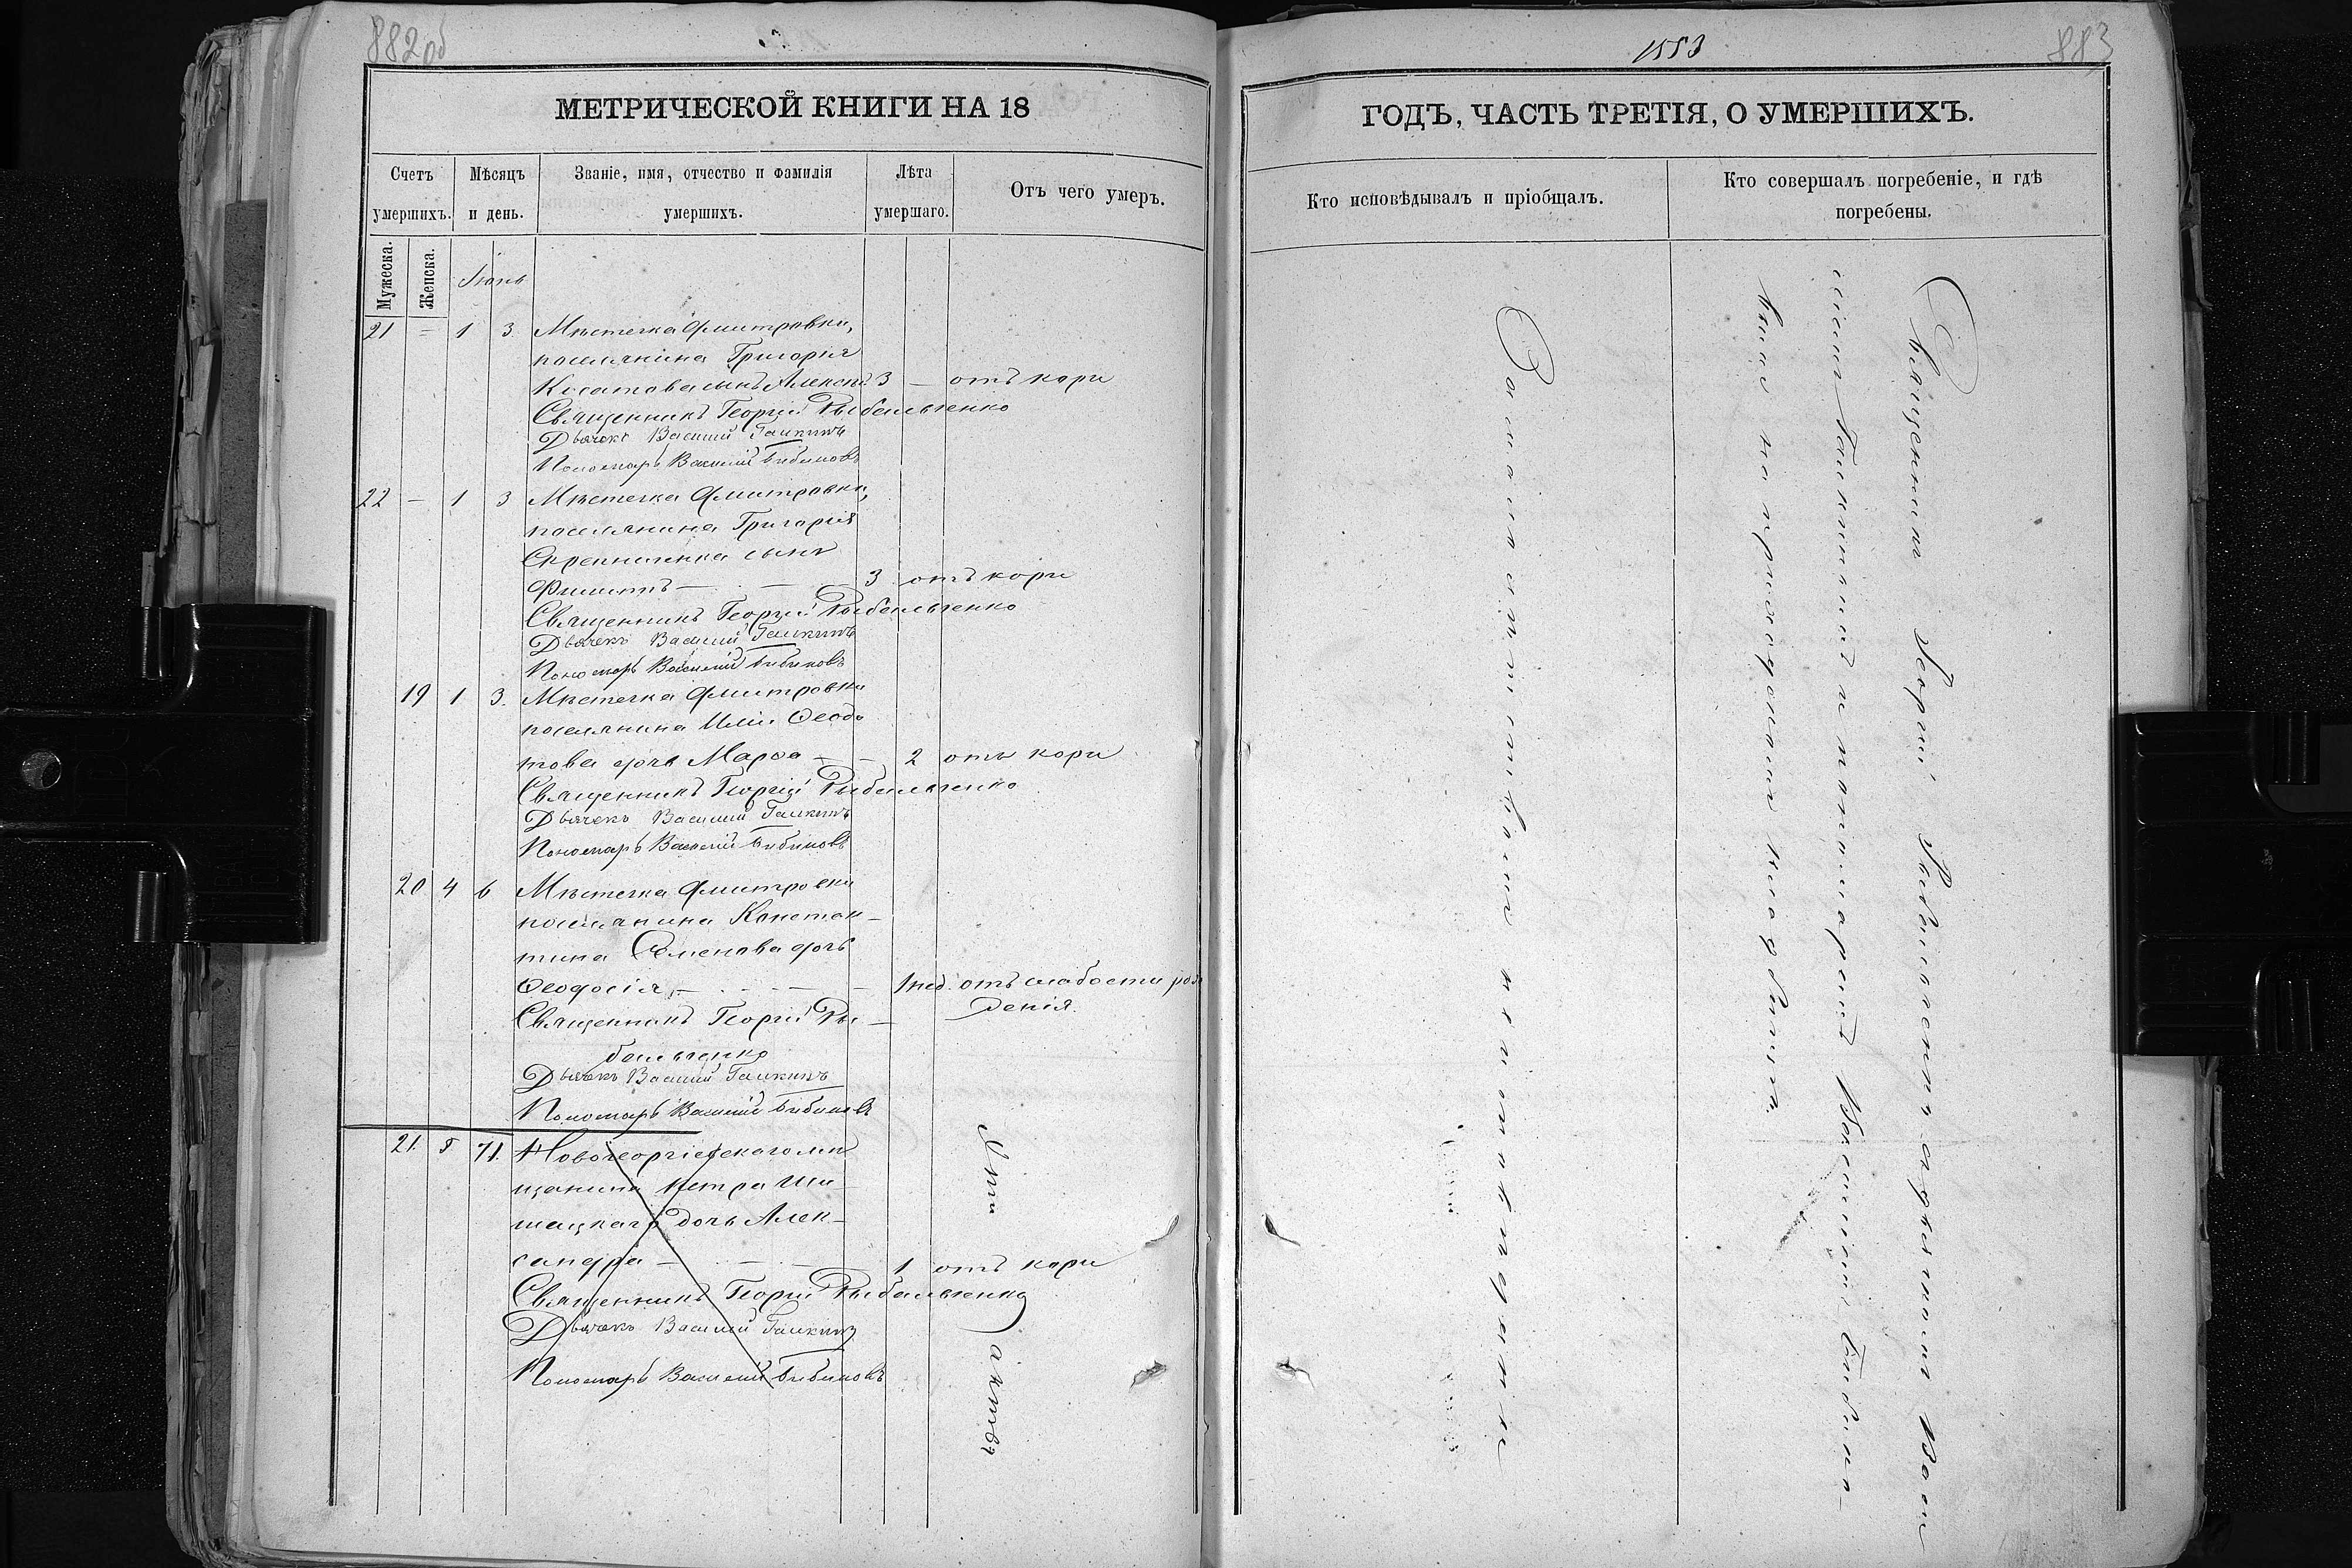 882об
МЕТРИЧЕСКОЙ КНИГИ НА 18
Счетъ умершихъ.
Мѣсяцъ и день.
Званіе, имя, отчество и фамилія умершихъ.
Лѣта умершаго.
Отъ чего умеръ.
Мужеска.
Женска.
21 — 1 3. Мѣстечка Дмитровки,
поселянина Григорія
сынъ Алексѣй 3 — отъ кори
Священникъ Георгій Рыбальченко
Дьячекъ Василій Галкинъ
Пономарь Василій Бибиковъ
22 — 1 3 Мѣстечка Дмитровки,
поселянина Григорія
сынъ
Филиппъ — 3 отъ кори
Священникъ Георгій Рыбальченко
Дьячекъ Василій Галкинъ
Пономарь Василій Бибиковъ
19 1 3. Мѣстечка Дмитровки
поселянина Иліи Ѳеодо
това дочь Марѳа — 2 отъ кори
Священникъ Георгій Рыбальченко
Дьячекъ Василій Галкинъ
Пономарь Василій Бибиковъ
20 4 6 Мѣстечка Дмитровки
поселянина Констан-
тина Семенова дочь
Ѳеодосія — 1 нед. отъ слабости рож
денія.
Священникъ Георгій Ры-
бальченко
Дьячекъ Василій Галкинъ
Пономарь Василій Бибиковъ
21. 5 71. Новогеоргіевскаго мѣ
щанина Петра Ши
шацкаго дочь Алек-
сандра — 1 отъ кори
Священникъ Георгій Рыбальченко
Дьячекъ Василій Галкинъ
Пономарь Василій Бибиковъ
актовъ
1553
883
ГОДЪ, ЧАСТЬ ТРЕТІЯ, О УМЕРШИХЪ.
Кто исповѣдывалъ и пріобщалъ.
Кто совершалъ погребеніе, и гдѣ погребены.
Священникъ Георгій Рыбальченко съ дьячкомъ Васи
ліемъ Галкинымъ и пономаремъ Василіемъ Бибико-
вымъ на приходскомъ кладбищѣ.